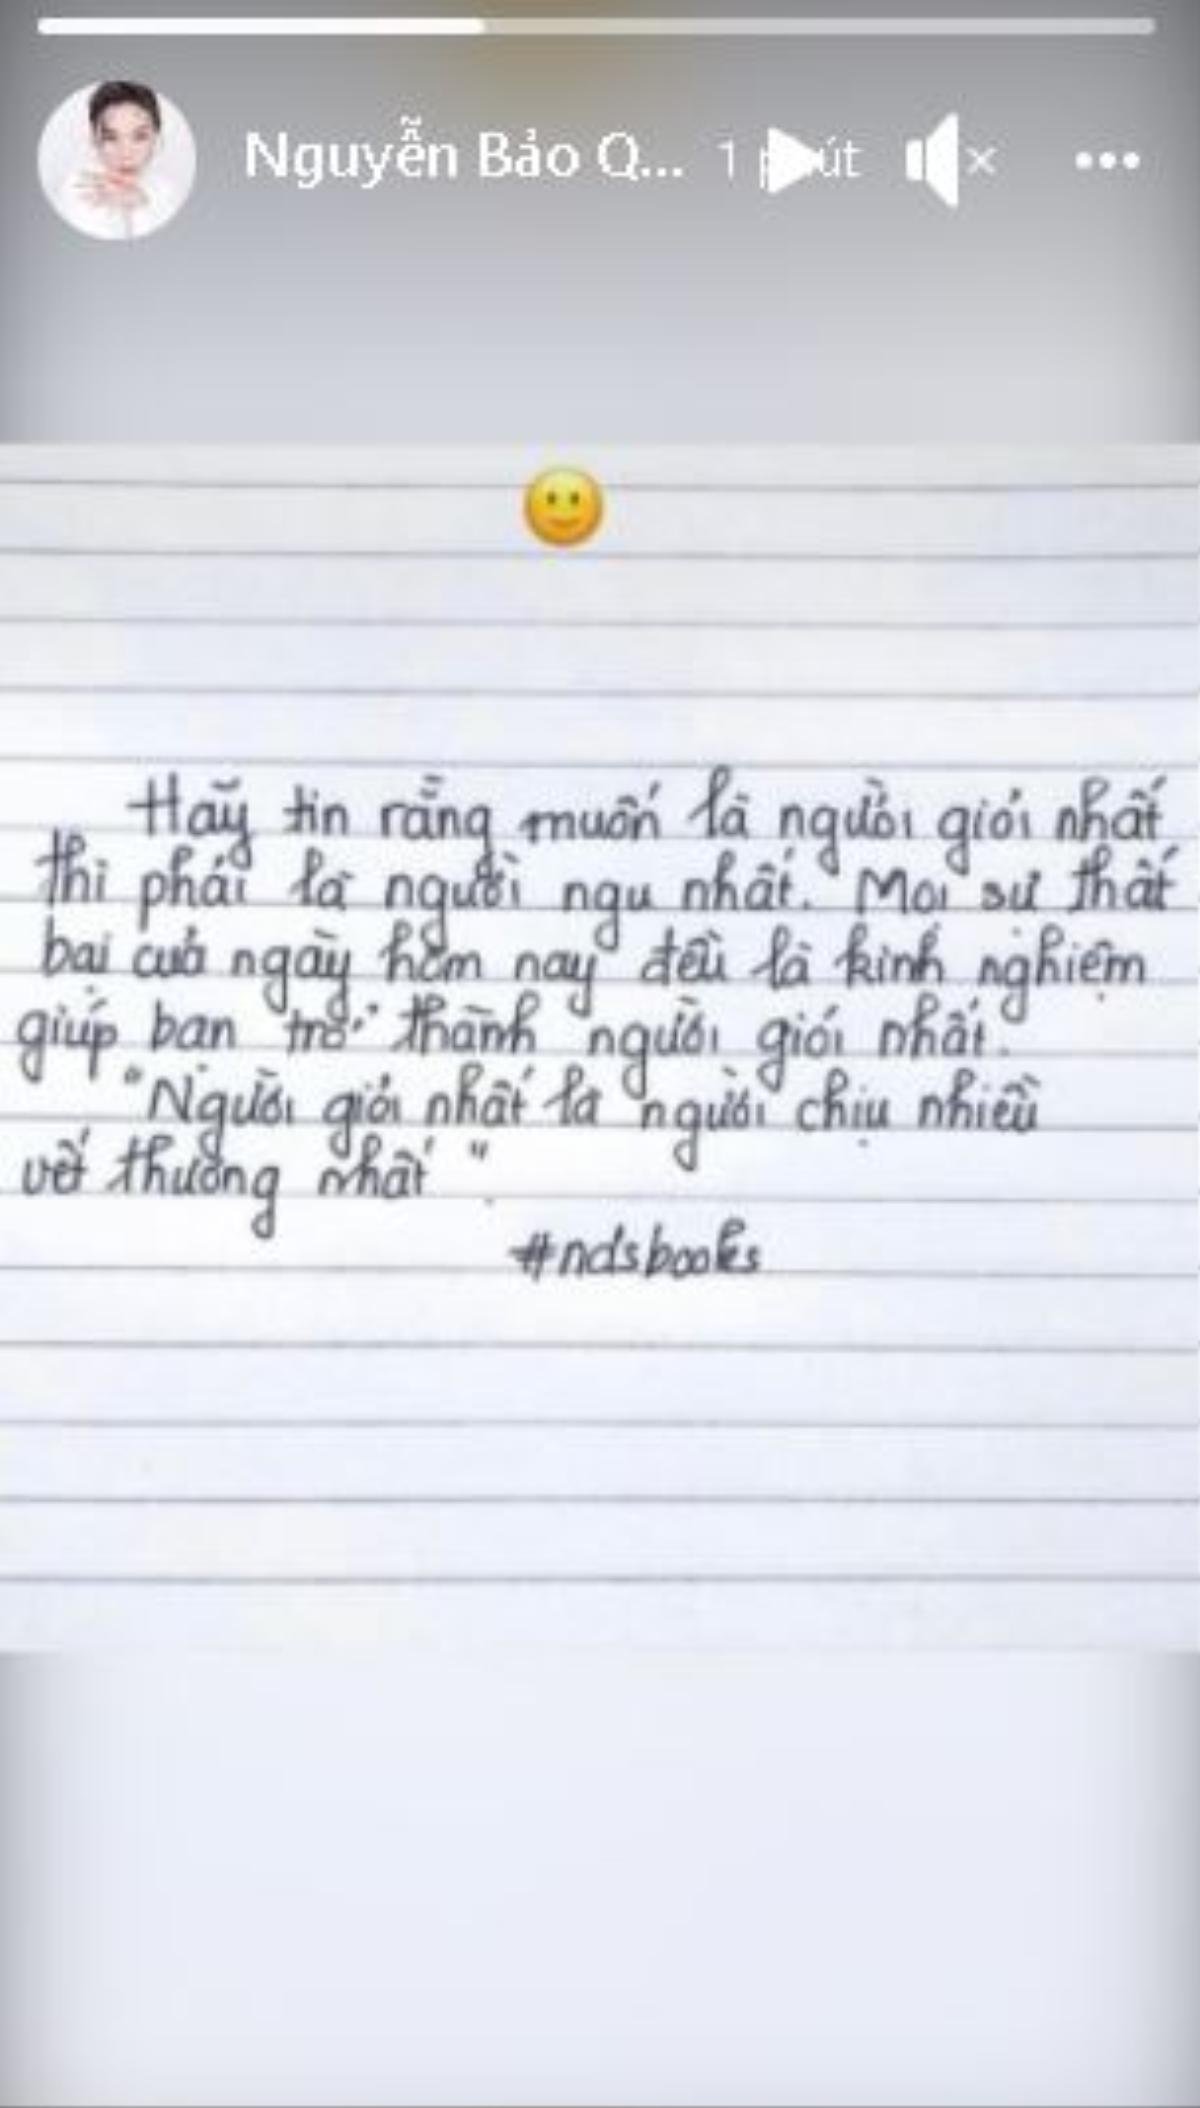 Nguyễn Bảo Q... 1 phút
Hãy tin rằng muốn là người giỏi nhất
thì phải là người ngu nhất. Mọi sự thất
bại của ngày hôm nay đều là kinh nghiệm
giúp bạn trở thành người giỏi nhất.
"Người giỏi nhất là người chịu nhiều
vết thương nhất".
#ndsbooks